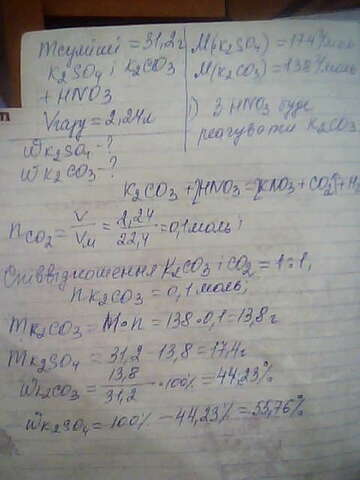 mсуміші = 31,2 г
K2SO4 і K2CO3
+ HNO3
Vгазу = 2,24л
M(K2SO4) = 174 г/моль
M(K2CO3) = 138 г/моль
1) З HNO3 буде
реагувати K2CO3
W K2SO4 - ?
W K2CO3 - ?
K2CO3 + 2HNO3 = 2KNO3 + CO2↑ + H2
nCO2 = V/Vм = 2,24/22,4 = 0,1 моль;
Співвідношення K2CO3 і CO2 = 1:1,
n K2CO3 = 0,1 моль;
mK2CO3 = M•n = 138•0,1 = 13,8г
mK2SO4 = 31,2 - 13,8 = 17,4г
WK2CO3 = 13,8/31,2 •100% = 44,23%
WK2SO4 = 100% - 44,23% = 55,76%